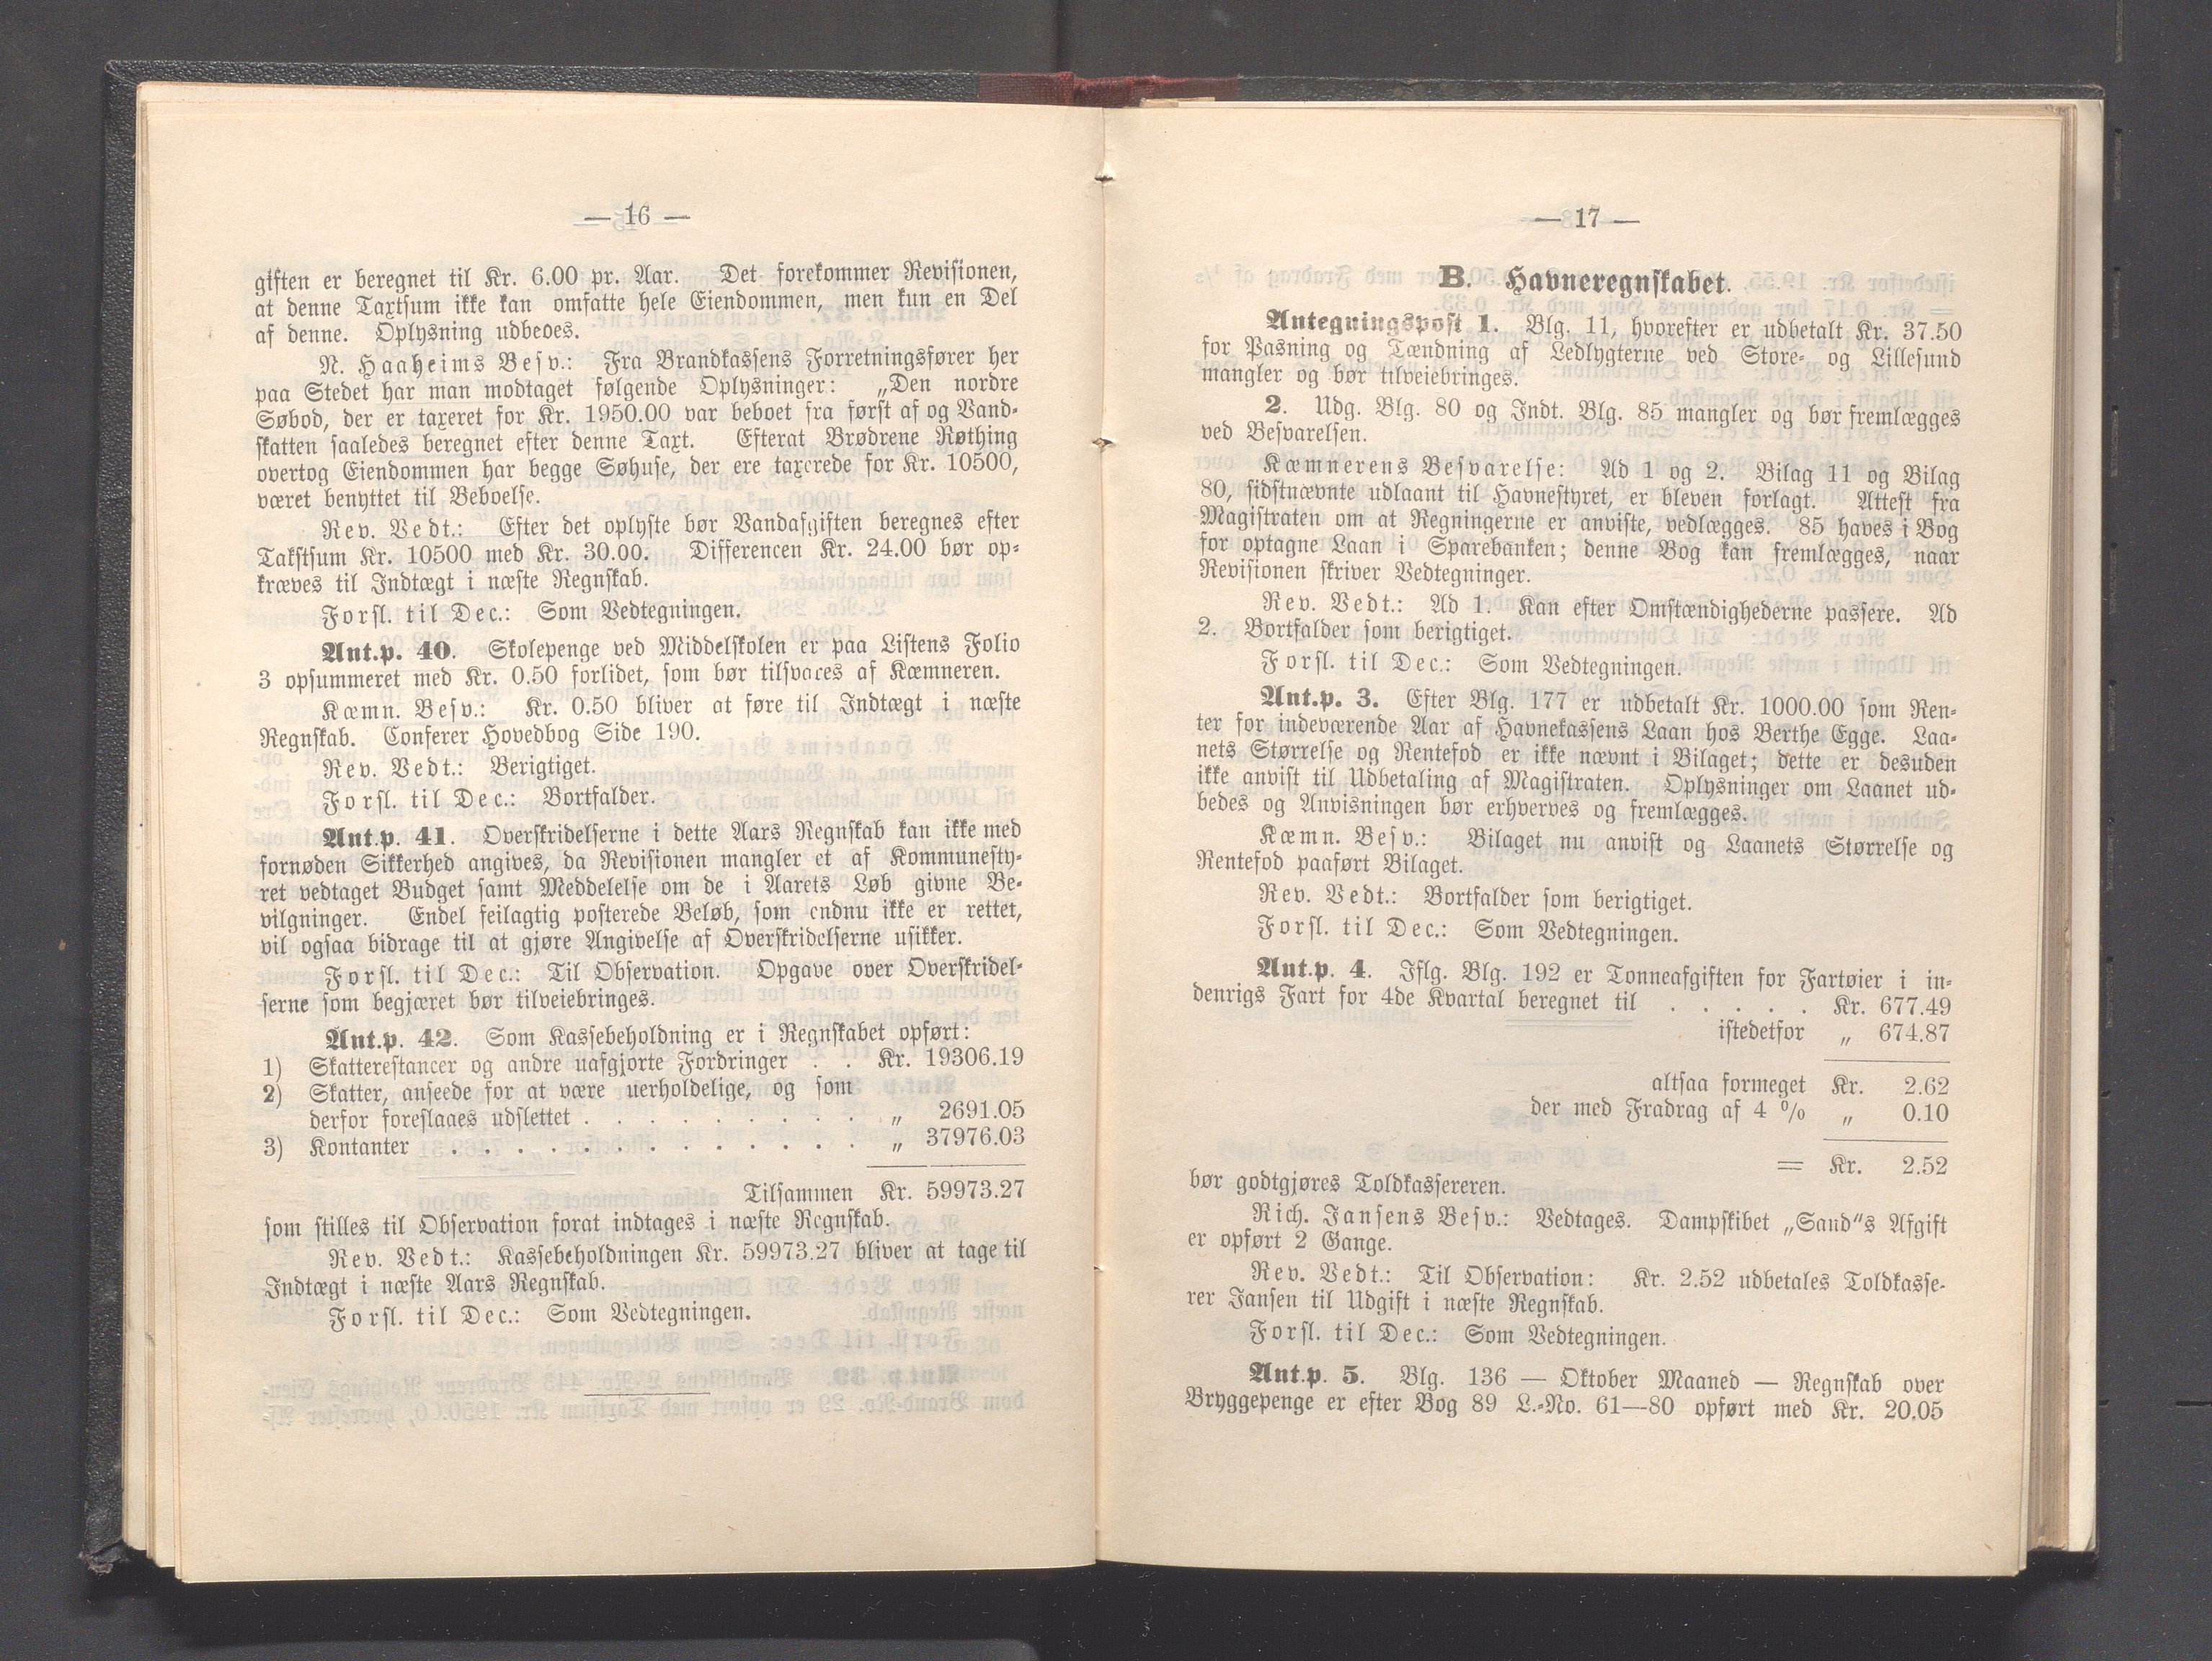 — 16 —
giften er beregnet til Kr. 6.00 pr. Aar. Det forekommer Revisionen,
at denne Taxtsum ikke kan omfatte hele Eiendommen, men kun en Del
af denne. Oplysning udbedes.
N. Haaheims Besv.: Fra Brandkassens Forretningsfører her
paa Stedet har man modtaget følgende Oplysninger: „Den nordre
Søbod, der er taxeret for Kr. 1950.00 var beboet fra først af og Vand-
skatten saaledes beregnet efter denne Taxt. Efterat Brødrene Røthing
overtog Eiendommen har begge Søhuse, der ere taxerede for Kr. 10500,
været benyttet til Beboelse.
Rev. Vedt.: Efter det oplyste bør Vandafgiften beregnes efter
Takstsum Kr. 10500 med Kr. 30.00. Differencen Kr. 24.00 bør op-
kræves til Indtægt i næste Regnskab.
Forsl. til Dec.: Som Vedtegningen.
Ant.p. 40. Skolepenge ved Middelskolen er paa Listens Folio
3 opsummeret med Kr. 0.50 forlidet, som bør tilsvares af Kæmneren.
Kæmn. Besv.: Kr. 0.50 bliver at føre til Indtægt i næste
Regnskab. Conferer Hovedbog Side 190.
Rev. Vedt.: Berigtiget.
Forsl. til Dec.: Bortfalder.
Ant.p. 41. Overskridelserne i dette Aars Regnskab kan ikke med
fornøden Sikkerhed angives, da Revisionen mangler et af Kommunesty-
ret vedtaget Budget samt Meddelelse om de i Aarets Løb givne Be-
vilgninger. Endel feilagtig posterede Beløb, som endnu ikke er rettet,
vil ogsaa bidrage til at gjøre Angivelse af Overskridelserne usikker.
Forsl. til Dec.: Til Observation. Opgave over Overskridel-
serne som begjæret bør tilveiebringes.
Ant.p. 42. Som Kassebeholdning er i Regnskabet opført:
1) Skatterestancer og andre uafgjorte Fordringer . . Kr. 19306.19
2) Skatter, anseede for at være uerholdelige, og som
derfor foreslaaes udslettet . . . . . . . . . „ 2691.05
3) Kontanter . . . . . . . . . . . . . „ 37976.03
Tilsammen Kr. 59973.27
som stilles til Observation forat indtages i næste Regnskab.
Rev. Vedt.: Kassebeholdningen Kr. 59973.27 bliver at tage til
Indtægt i næste Aars Regnskab.
Forsl. til Dec.: Som Vedtegningen.
— 17 —
B. Havneregnskabet.
Antegningspost 1. Blg. 11, hvorefter er udbetalt Kr. 37.50
for Pasning og Tændning af Ledlygterne ved Store- og Lillesund
mangler og bør tilveiebringes.
2. Udg. Blg. 80 og Indt. Blg. 85 mangler og bør fremlægges
ved Besvarelsen.
Kæmnerens Besvarelse: Ad 1 og 2. Bilag 11 og Bilag
80, sidstnævnte udlaant til Havnestyret, er bleven forlagt. Attest fra
Magistraten om at Regningerne er anviste, vedlægges. 85 haves i Bog
for optagne Laan i Sparebanken; denne Bog kan fremlægges, naar
Revisionen skriver Vedtegninger.
Rev. Vedt.: Ad 1. Kan efter Omstændighederne passere. Ad
2. Bortfalder som berigtiget.
Forsl. til Dec.: Som Vedtegningen.
Ant.p. 3. Efter Blg. 177 er udbetalt Kr. 1000.00 som Ren-
ter for indeværende Aar af Havnekassens Laan hos Berthe Egge. Laa-
nets Størrelse og Rentefod er ikke nævnt i Bilaget; dette er desuden
ikke anvist til Udbetaling af Magistraten. Oplysninger om Laanet ud-
bedes og Anvisningen bør erhverves og fremlægges.
Kæmn. Besv.: Bilaget nu anvist og Laanets Størrelse og
Rentefod paaført Bilaget.
Rev. Vedt.: Bortfalder som berigtiget.
Forsl. til Dec.: Som Vedtegningen.
Ant.p. 4. Iflg. Blg. 192 er Tonneafgiften for Fartøier i in-
denrigs Fart for 4de Kvartal beregnet til . . . . . Kr. 677.49
istedetfor „ 674.87
altsaa formeget Kr. 2.62
der med Fradrag af 4 % „ 0.10
= Kr. 2.52
bør godtgjøres Toldkassereren.
Rich. Jansens Besv.: Vedtages. Dampskibet „Sand"s Afgift
er opført 2 Gange.
Rev. Vedt.: Til Observation: Kr. 2.52 udbetales Toldkasse-
rer Jansen til Udgift i næste Regnskab.
Forsl. til Dec.: Som Vedtegningen.
Ant.p. 5. Blg. 136 — Oktober Maaned — Regnskab over
Bryggepenge er efter Bog 89 L.-No. 61—80 opført med Kr. 20.05